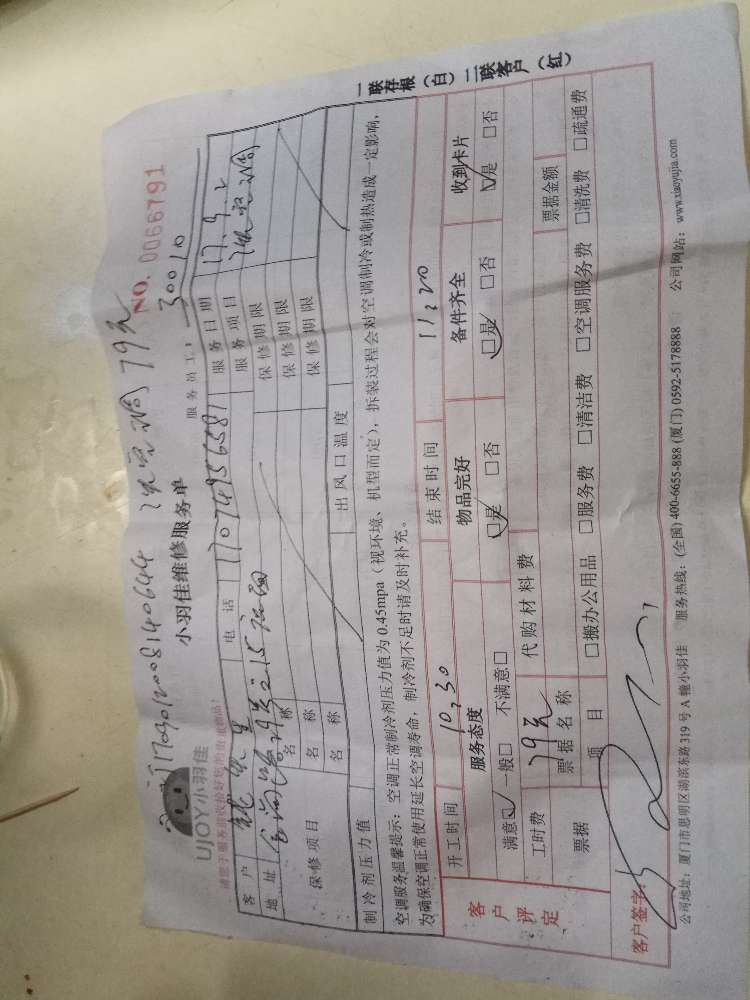 170901200814064479元
NO. 0066791
UJOY小羽佳
小羽佳维修服务单
服务员工：30010
客户
电话 17074956581
服务日期 17.9.2
地址
服务项目
保修项目
名称
保修期限
名称
保修期限
名称
保修期限
制冷剂压力值
出风口温度
空调服务温馨提示：空调正常制冷剂压力值为0.45mpa（视环境、机型而定），拆装过程会对空调制冷或制热造成一定影响，
为确保空调正常使用延长空调寿命，制冷剂不足时请及时补充。
客户评定
开工时间 10,30
结束时间 11,20
服务态度
物品完好
备件齐全
收到卡片
满意☑ 一般□ 不满意□
☑是 □否
☑是 □否
☑是 □否
工时费 79元
代购材料费
票据
票据名称
票据金额
项目
□搬办公用品 □服务费 □清洁费 □空调服务费 □清洗费 □疏通费
客户签字：
公司地址：厦门市思明区湖滨东路319号A幢小羽佳 服务热线：(全国) 400-6655-888 (厦门) 0592-5178888 公司网站：www.xiaoyujia.com
一联存根（白）二联客户（红）